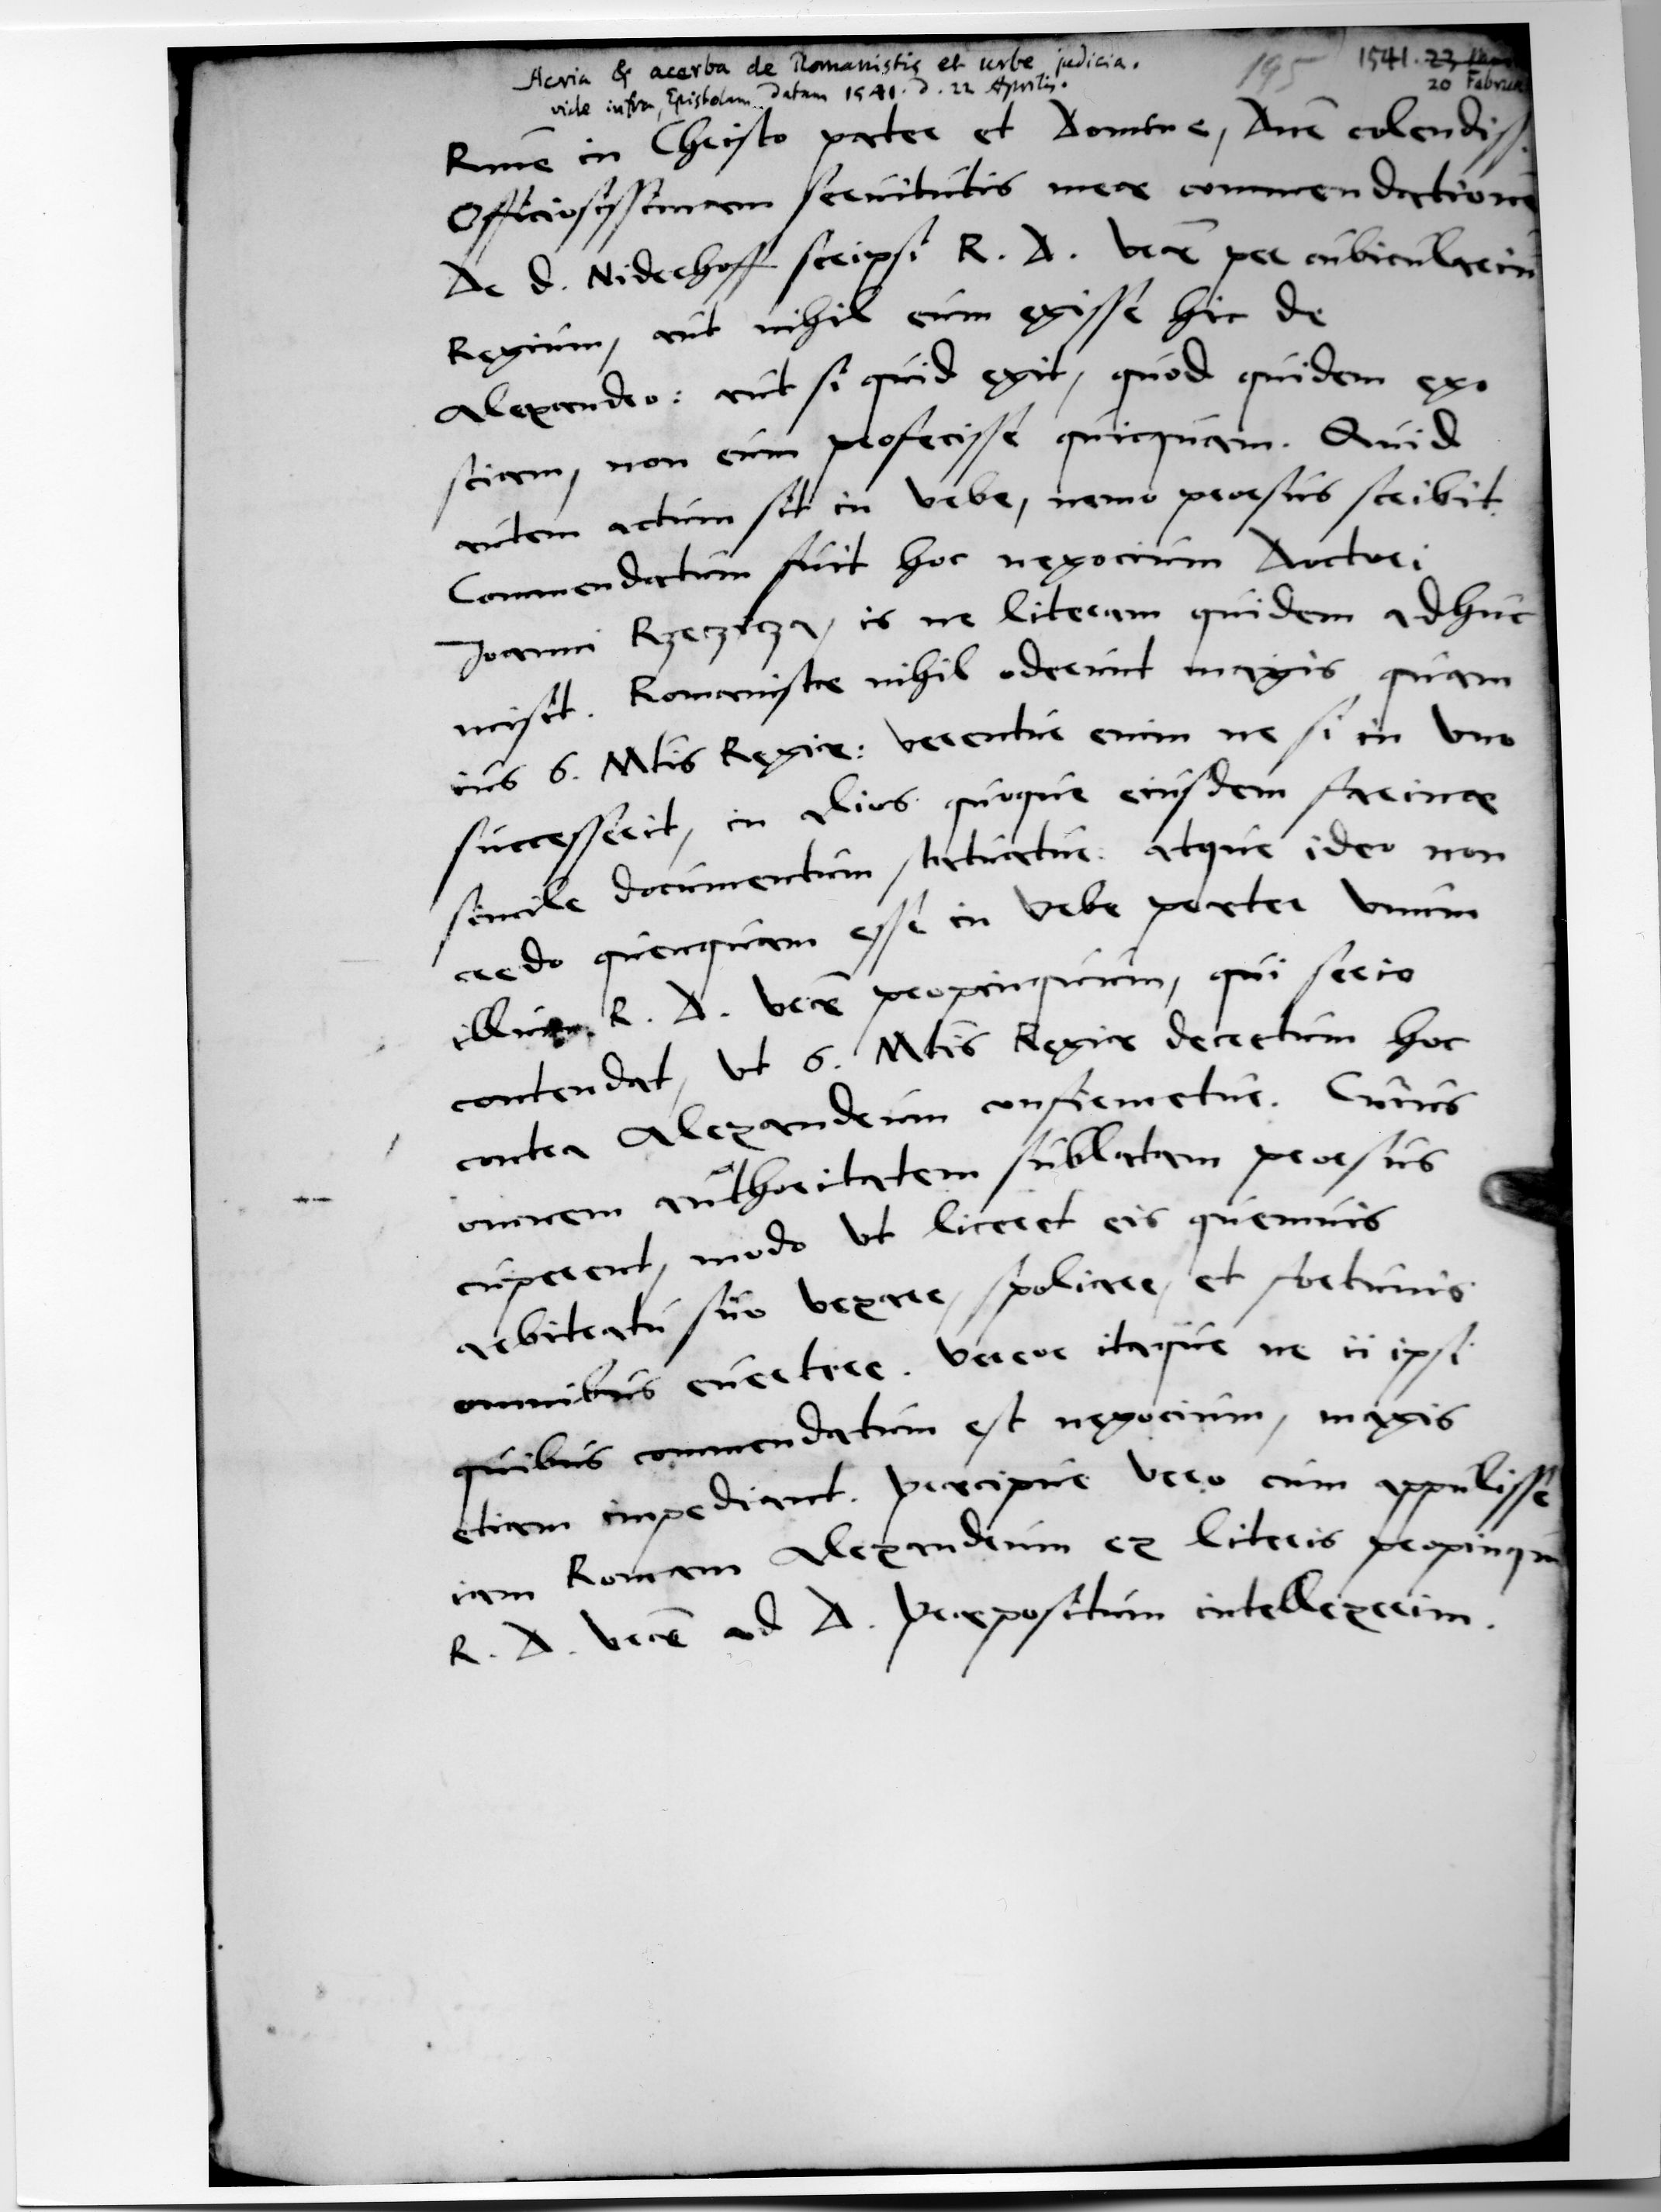 Acria & acerba de Romanistis et urbe judicia.
vide infra, Epistolam datam 1541. d. 22 Aprilis.
195
1541. 23 Janu
20 Februar
Rme in Christo pater et Domine, Dne colendiss.
Officiosissimam servitutis meae commendationem
De d. Niderhoff scripsi R. D. Vrae per cubicularium
Regium, aut nihil eum egisse hic de
Alexandro: aut si quid egit, quod quidem ego
sciam, non eum profecisse quicquam. Quid
autem actum sit in Vrbe, nemo prorsus scribit.
Commendatum fuit hoc negocium Doctori
Joanni Rzeczicza, is ne literam quidem adhuc
misit. Romanistae nihil oderunt magis quam
ius S. Mtis Regiae: verentur enim ne si in vno
successerit, in alios quoque eiusdem farinae
simile documentum statuatur. atque ideo non
credo quenquam esse in Vrbe praeter vnum
illum R. D. Vrae propinquum, qui serio
contendat, vt S. Mtis Regiae decretum hoc
contra Alexandrum confirmetur. Cuius
omnem authoritatem sublatam prorsus
cuperent, modo vt liceret eis quemuis
arbitratu suo vexare, spoliare, et fortunis
omnibus euertere. Vereor itaque ne ii ipsi
quibus commendatum est negocium, magis
etiam impediant. Praecipue vero cum appulisse
iam Romam Alexandrum ex literis propinqui
R. D. Vrae ad D. Praepositum intellexerim.